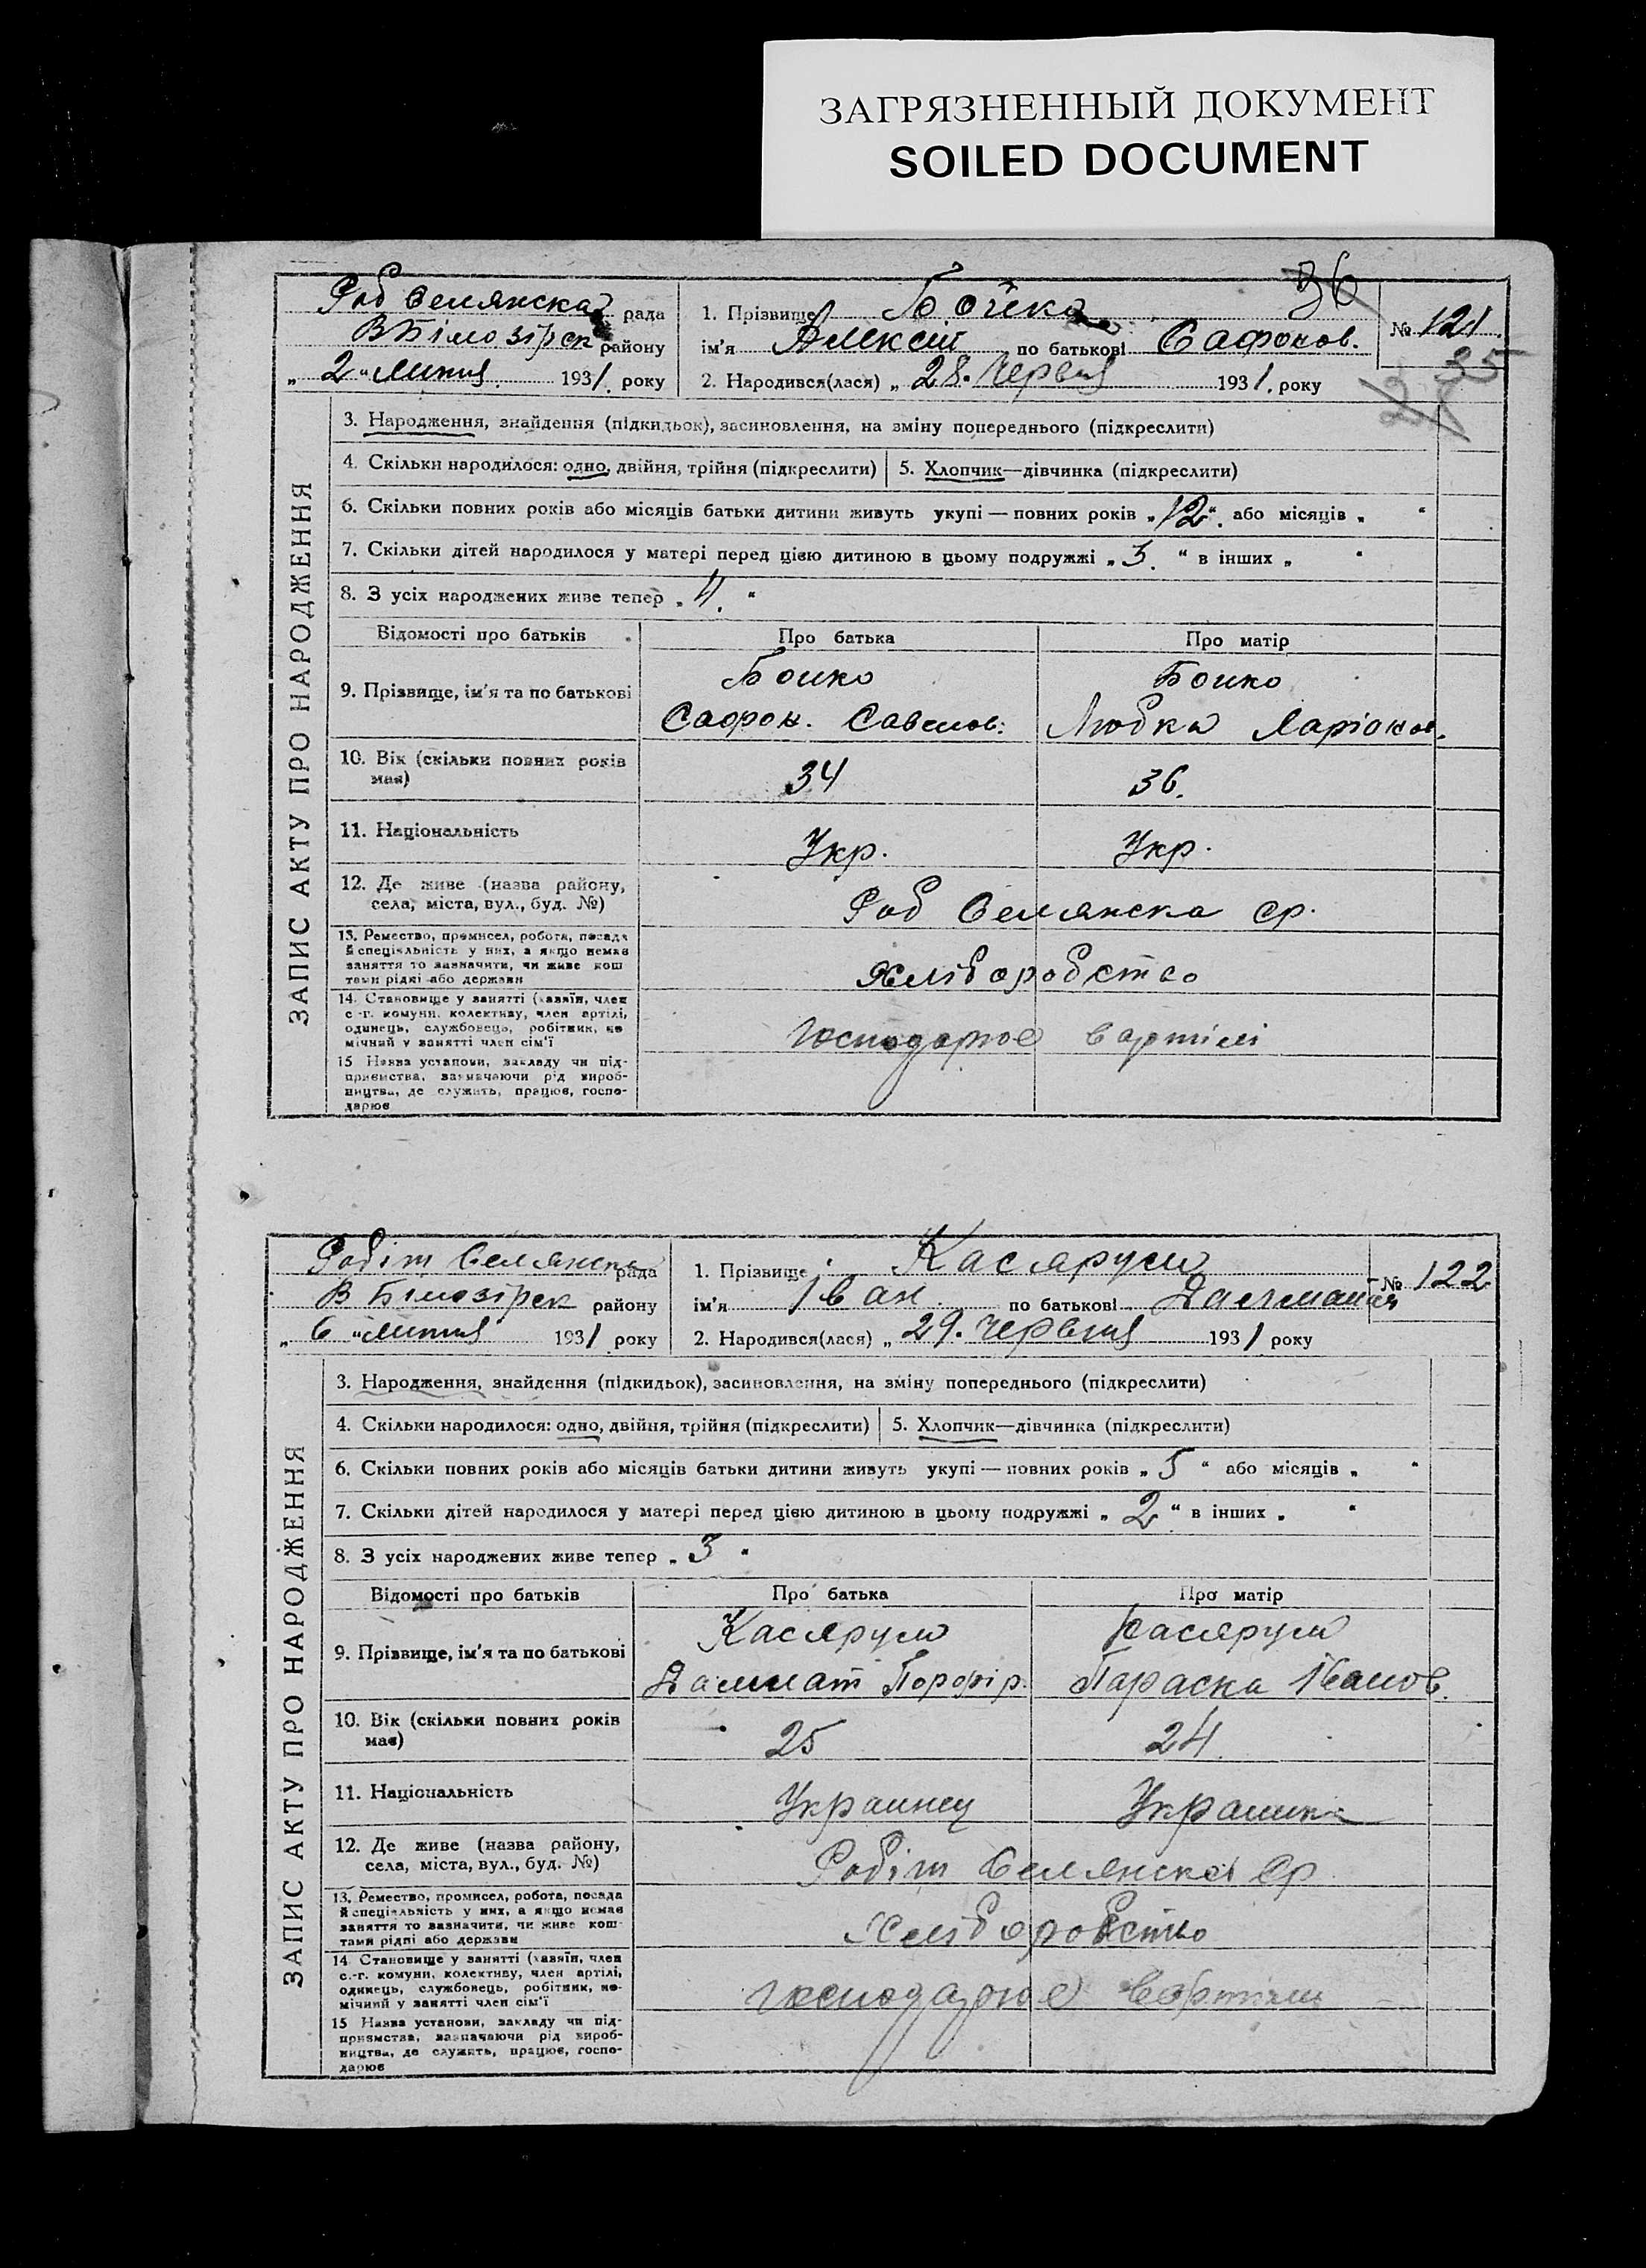 ЗАГРЯЗНЕННЫЙ ДОКУМЕНТ
SOILED DOCUMENT
36
Роб Селянска рада
В Білозірск району
„ 2 " Липня 1931. року
1. Прізвище Бойко
ім'я Алексій по батькові Сафонов.
2. Народився(лася) „ 28. Червня 1931. року
№ 121
35
ЗАПИС АКТУ ПРО НАРОДЖЕННЯ
3. Народження, знайдення (підкидьок), засиновлення, на зміну попереднього (підкреслити)
4. Скільки народилося: одно, двійня, трійня (підкреслити) 5. Хлопчик—дівчинка (підкреслити)
6. Скільки повних років або місяців батьки дитини живуть укупі — повних років „ 12 ". або місяців „ "
7. Скільки дітей народилося у матері перед цією дитиною в цьому подружжі „ 3. " в інших „ "
8. З усіх народжених живе тепер „ 4. "
Відомості про батьків Про батька Про матір
9. Прізвище, ім'я та по батькові
Бойко Бойко
Сафон. Савелов. Любка Ларіонов.
10. Вік (скільки повних років має) 34 36.
11. Національність Укр. Укр.
12. Де живе (назва району, села, міста, вул., буд. №) Роб Селянска ср.
13. Ремество, промисел, робота, посада й спеціяльність у них, а якщо немає заняття то зазначити, чи живе коштами рідні або держави Хліборобство
14. Становище у занятті (хазяїн, член с.-г. комуни, колективу, член артілі, одинець, службовець, робітник, помічний у занятті член сім'ї Господарює в артілі
15 Назва установи, закладу чи підприємства, зазначаючи рід виробництва, де служить, працює, господарює
Робіт Селянска рада
В Білозірск району
„ 6 " Липня 1931 року
1. Прізвище Касярум
ім'я Іван по батькові
2. Народився(лася) „ 29. Червня 1931 року
№ 122
ЗАПИС АКТУ ПРО НАРОДЖЕННЯ
3. Народження, знайдення (підкидьок), засиновлення, на зміну попереднього (підкреслити)
4. Скільки народилося: одно, двійня, трійня (підкреслити) 5. Хлопчик—дівчинка (підкреслити)
6. Скільки повних років або місяців батьки дитини живуть укупі — повних років „ 5 " або місяців „ "
7. Скільки дітей народилося у матері перед цією дитиною в цьому подружжі „ 2 " в інших „ "
8. З усіх народжених живе тепер „ 3 "
Відомості про батьків Про батька Про матір
9. Прізвище, ім'я та по батькові
Касярум Касярум
Далмат Порфір. Параска Іванов.
10. Вік (скільки повних років має) 25 24
11. Національність Украинец Украинка
12. Де живе (назва району, села, міста, вул., буд. №) Робіт Селянска ср
13. Ремество, промисел, робота, посада й спеціяльність у них, а якщо немає заняття то зазначити, чи живе коштами рідні або держави Хліборобство
14. Становище у занятті (хазяїн, член с.-г. комуни, колективу, член артілі, одинець, службовець, робітник, помічний у занятті член сім'ї Господарює в артілі
15 Назва установи, закладу чи підприємства, зазначаючи рід виробництва, де служить, працює, господарює